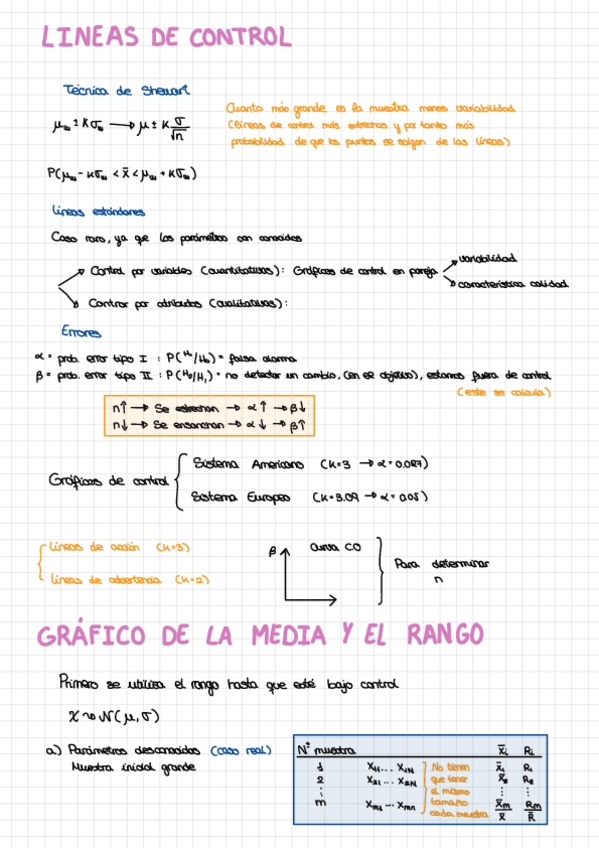 LINEAS DE CONTROL
Técnica de Shewart
μω ± Kσω → μ ± K σ/√n
Cuanto más grande es la muestra menos variabilidad
(líneas de control más estrechas y por tanto más
probabilidad de que los puntos se salgan de las líneas)
P(μω - Kσω < x̄ < μω + Kσω)
Líneas estándares
Caso raro, ya que los parámetros son conocidos
Control por variables (cuantitativas): Gráficos de control en pareja
variabilidad
característica calidad
Control por atributos (cualitativas):
Errores
α = prob. error tipo I : P(H₁/H₀) = falsa alarma
β = prob. error tipo II : P(H₀/H₁) = no detectar un cambio, (en ese objetivo), estamos fuera de control
(este se calcula)
n↑ → Se estrechan → α↑ → β↓
n↓ → Se ensanchan → α↓ → β↑
Gráficos de control
Sistema Americano (K=3 → α=0.027)
Sistema Europeo (K=3.09 → α=0.05)
Líneas de acción (K=3)
Líneas de advertencia (K=2)
β
Curva CO
Para determinar
n
GRÁFICO DE LA MEDIA Y EL RANGO
Primero se utiliza el rango hasta que esté bajo control
X ~ N(μ, σ)
a) Parámetros desconocidos (caso real)
Muestra inicial grande
Nº muestra x̄i Ri
1 X11 ... X1N No tienen x̄1 R1
2 X21 ... X2N que tener x̄2 R2
⋮ el mismo ⋮ ⋮
m Xm1 ... Xmn tamaño x̄m Rm
cada muestra x̿ R̄